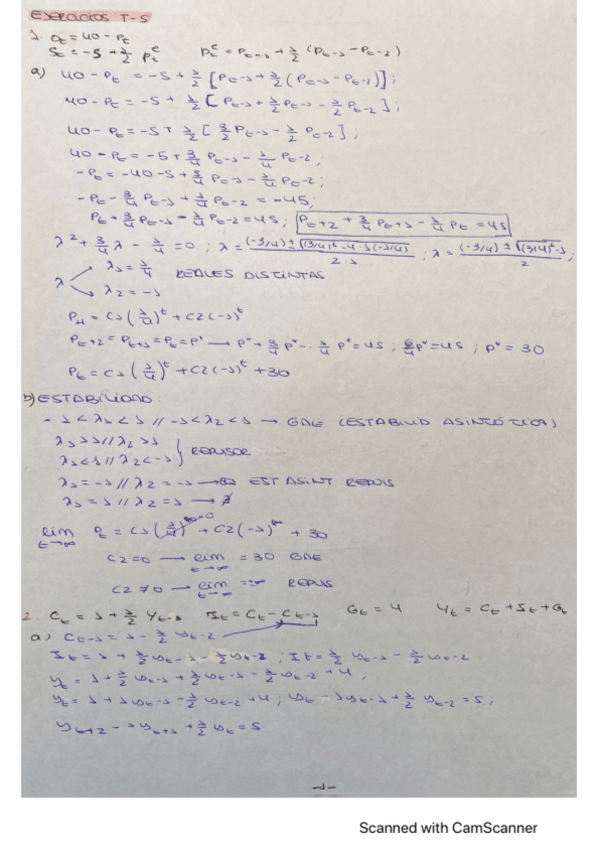 EJERCICIOS T-5
1. Qt = 40 - Pt
St = -5 + 1/2 Pt^e    Pt^e = Pt-1 + 1/2 (Pt-1 - Pt-2)
a) 40 - Pt = -5 + 1/2 [Pt-1 + 1/2 (Pt-1 - Pt-2)];
40 - Pt = -5 + 1/2 [Pt-1 + 1/2 Pt-1 - 1/2 Pt-2];
40 - Pt = -5 + 1/2 [3/2 Pt-1 - 1/2 Pt-2];
40 - Pt = -5 + 3/4 Pt-1 - 1/4 Pt-2;
-Pt = -40 - 5 + 3/4 Pt-1 - 1/4 Pt-2;
-Pt - 3/4 Pt-1 + 1/4 Pt-2 = -45;
Pt + 3/4 Pt-1 - 1/4 Pt-2 = 45; Pt+2 + 3/4 Pt+1 - 1/4 Pt = 45
λ² + 3/4 λ - 1/4 = 0; λ = (-3/4) ± √(3/4)² - 4·1·(-1/4) / 2·1; λ = (-3/4) ± √(3/4)² - 1 / 2;
λ1 = 1/4
λ REALES DISTINTAS
λ2 = -1
PH = C1 (1/4)^t + C2 (-1)^t
Pt+2 = Pt+1 = Pt = P* → P* + 3/4 P* - 1/4 P* = 45; 6/4 P* = 45; P* = 30
Pt = C1 (1/4)^t + C2 (-1)^t + 30
b) ESTABILIDAD:
-1 < λ1 < 1 // -1 < λ2 < 1 → GAE (ESTABILID ASINTÓTICA)
λ1 > 1 // λ2 > 1
REPULSOR
λ1 < 1 // λ2 < -1
λ1 = -1 // λ2 = -1 → EST ASINT REPUS
λ1 = 1 // λ2 = 1 → ∄
lim t→∞ Pt = C1 (1/4)^t→0 + C2 (-1)^t + 30
C2 = 0 → lim t→∞ = 30 GAE
C2 ≠ 0 → lim t→∞ = ±∞ REPUS
2. Ct = 1 + 1/2 Yt-1    It = Ct - Ct-1    Gt = 4    Yt = Ct + It + Gt
a) Ct-1 = 1 - 1/2 yt-2
It = 1 + 1/2 yt-1 - 1 - 1/2 yt-2; It = 1/2 yt-1 - 1/2 yt-2
yt = 1 + 1/2 yt-1 + 1/2 yt-1 - 1/2 yt-2 + 4;
yt = 1 + 1 yt-1 - 1/2 yt-2 + 4; yt - 1 yt-1 + 1/2 yt-2 = 5;
yt+2 - 1 yt+1 + 1/2 yt = 5
-1-
Scanned with CamScanner